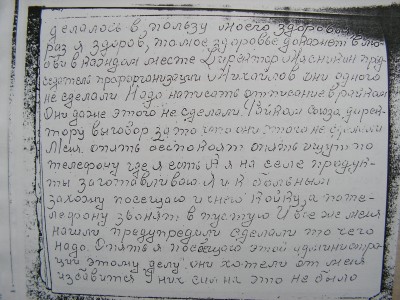 делалось в, пользу моего здоровья
раз я здоров, то мое здоровье должнет в лю-
бви в каждом месте Директор Мясникин пред-
седатель проforганизации Михайлов они одного
не сделали Надо написать отписание в райком
Они даже этого не сделали Райком союза дирек-
тору выговор за то что они этого не сделали
Меня опять беспокоят опять ищут по
телефону где я есть А я на селе продук-
ты заготавливаю Я и к больным
захожу посещаю и снею койку, а по те-
лефону звонят в пустую И все же меня
нашли предупредили сделали то чего
надо. Опять я посвещаю этой администра-
ции этому делу они хотели от меня
избавится У них сил на это не было